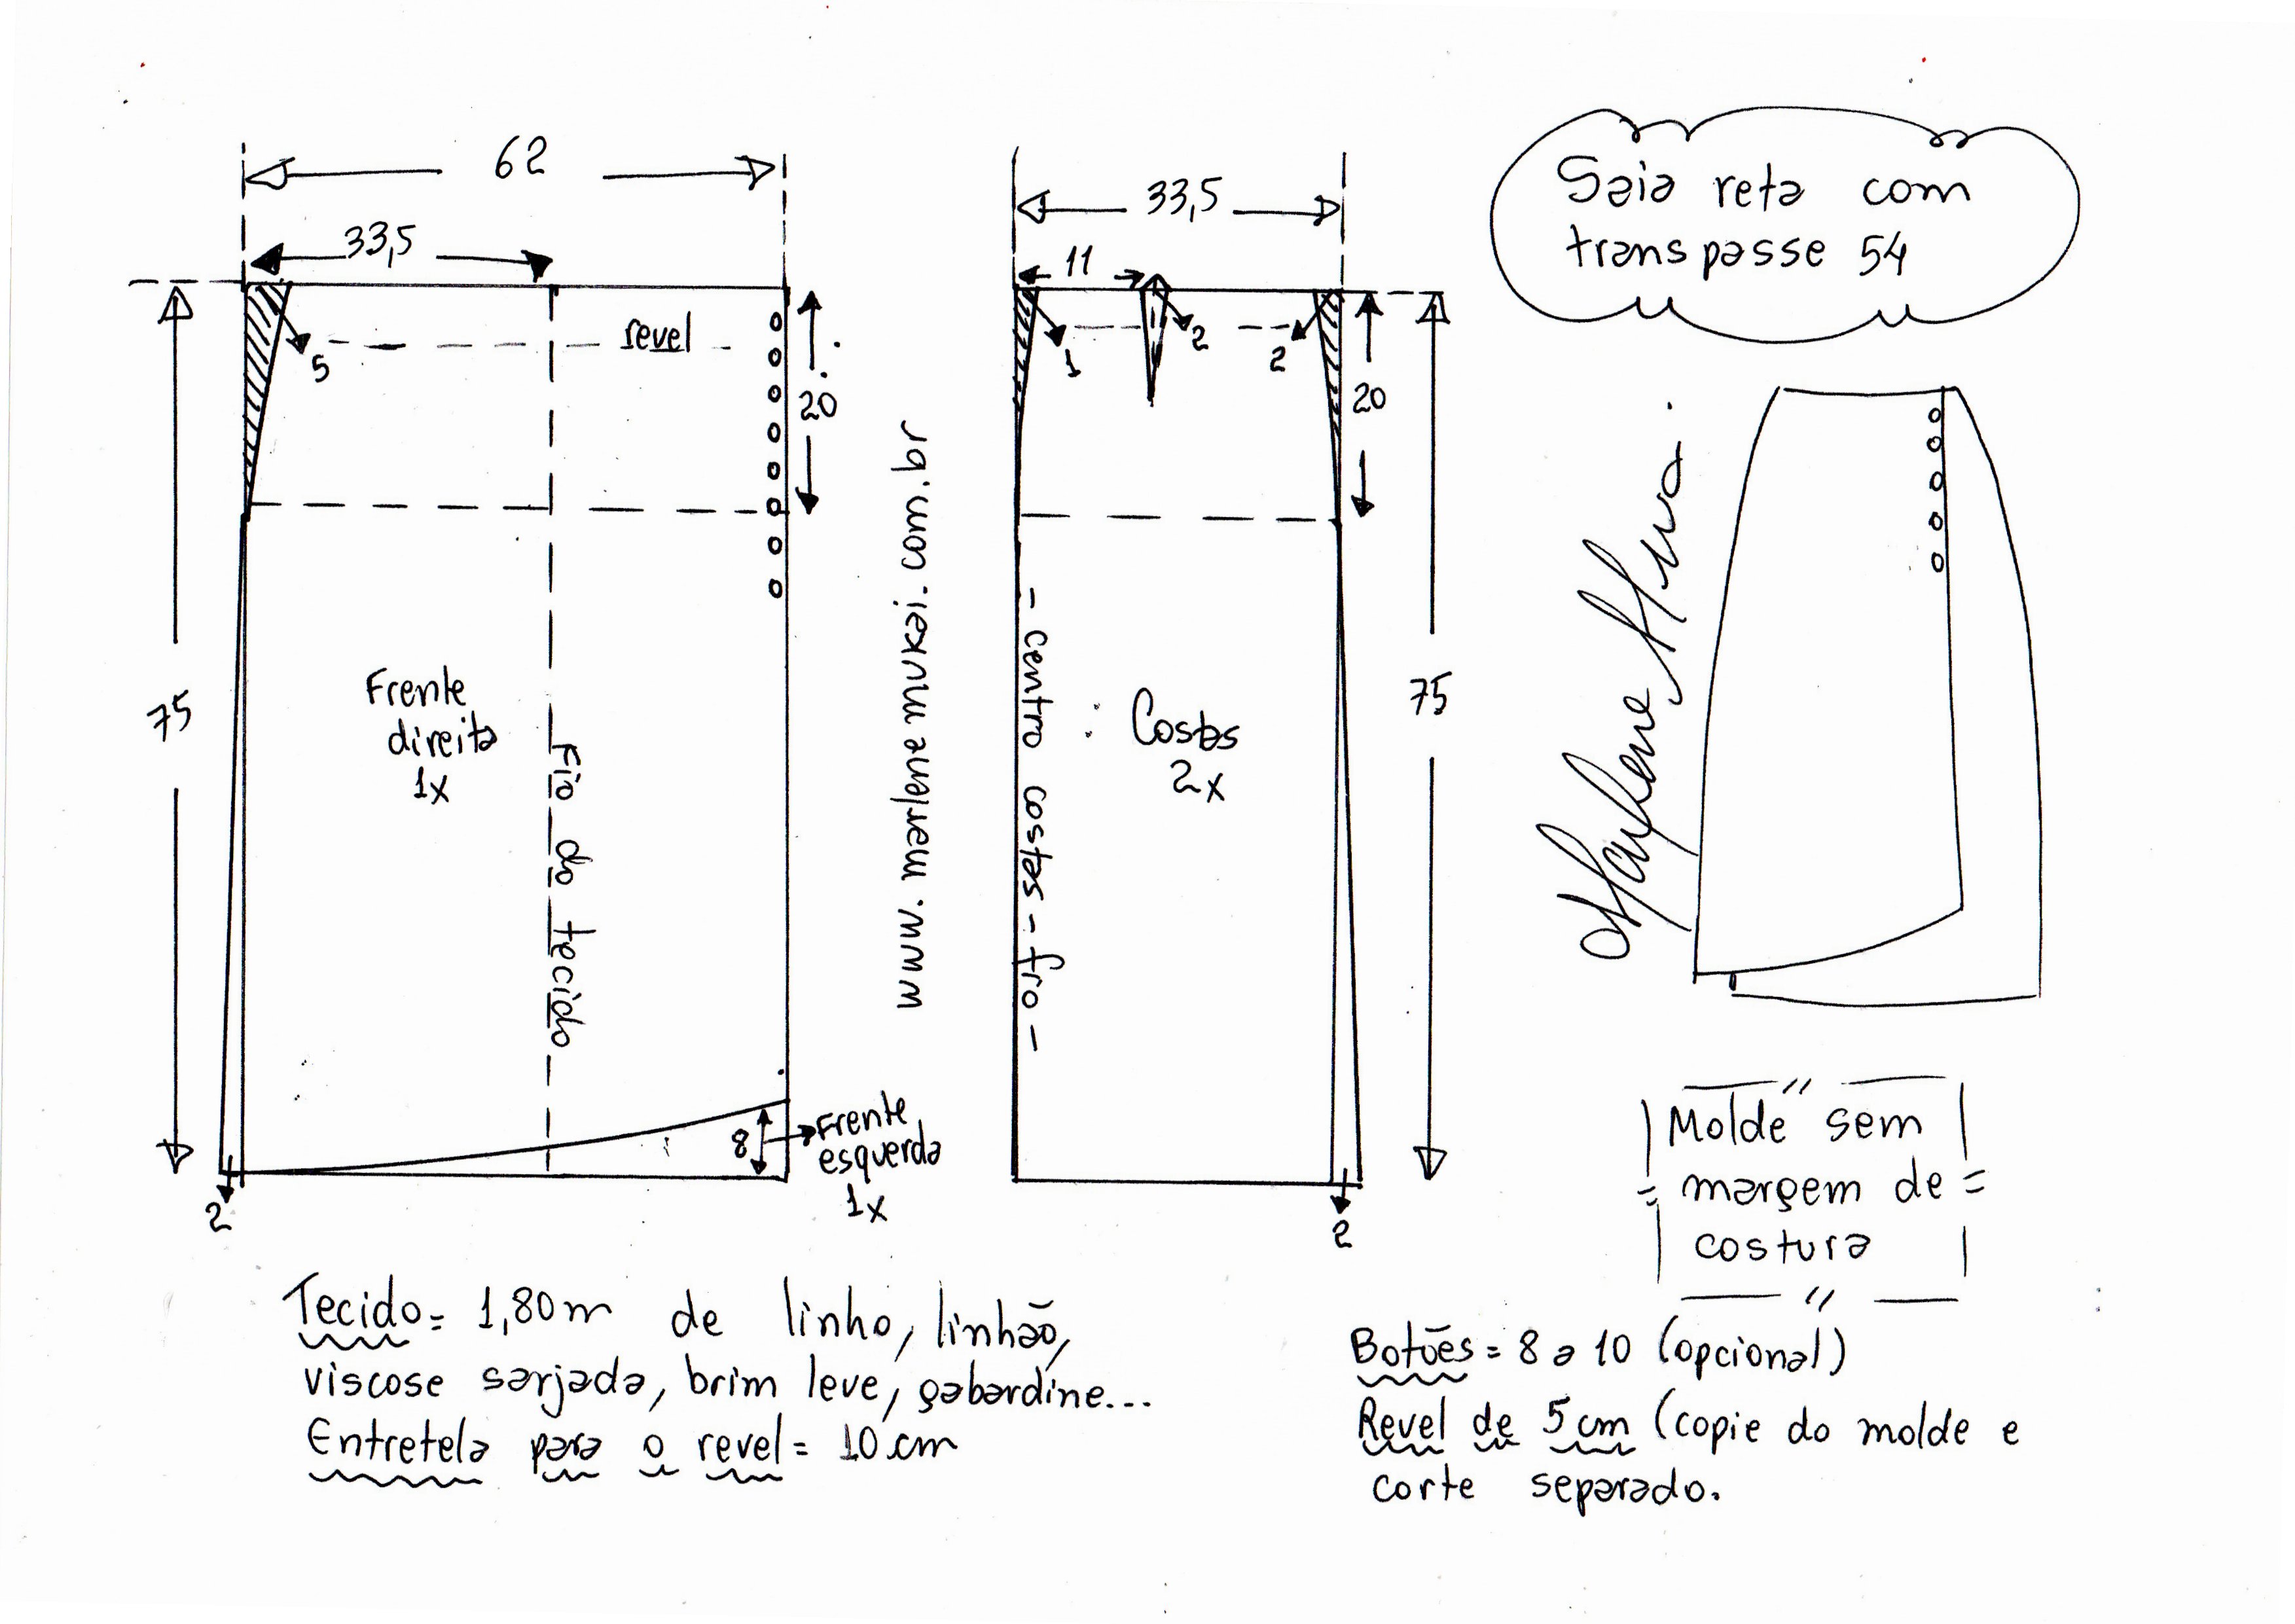 62
33,5
revel
5
20
75
Frente
direita
1x
Fio do tecido
8
Frente
esquerda
1x
2
www.marlene mukai.com.br
33,5
11
1
2
2
20
75
centro costas - fio -
Costas
2x
2
Saia reta com
transpasse 54
Molde sem
margem de
costura
Tecido = 1,80m de linho, linhão,
viscose sarjada, brim leve, gabardine...
Entretela para o revel = 10 cm
Botões = 8 a 10 (opcional)
Revel de 5 cm (copie do molde e
corte separado.